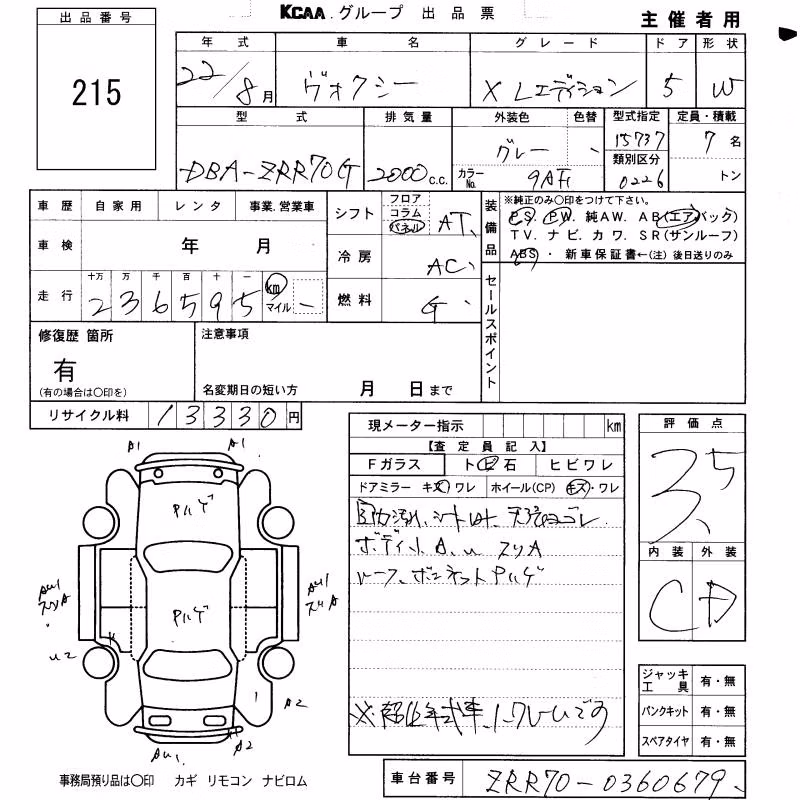 出品番号
KCAA.グループ 出品票
主催者用
215
年式 車名 グレード ドア 形状
22/8月 ヴォクシー X Lエディション 5 W
型式 排気量 外装色 色替 型式指定 定員・積載
DBA-ZRR70G 2000c.c. グレー 15737 7名
カラーNo. 9AF1 類別区分 0226 トン
車歴 自家用 レンタ 事業.営業車
車検 年 月
走行 十万 万 千 百 十 一
236595 km マイル
シフト フロア コラム パネル AT
冷房 AC
燃料 G
装備品 ※純正のみ〇印をつけて下さい。
PS. PW. 純AW. AB(エアバック)
TV. ナビ. カワ. SR(サンルーフ)
ABS ・ 新車保証書←(注)後日送りのみ
セールスポイント
修復歴 箇所
有
(有の場合は〇印を)
注意事項
名変期日の短い方 月 日まで
リサイクル料 13330円
現メーター指示 km
【査定員記入】
Fガラス トビ石 ヒビワレ
ドアミラー キズワレ ホイール(CP) キズ・ワレ
内汚れ、シート 天張ヨゴレ
ボディ A、U スリA
ルーフ、ボンネット Pハゲ
評価点
3.5
内装 外装
C D
A1 A1
Pハゲ
Pハゲ
AU1
スリA
AU1
スリA
U2
A2
AU1 A2
ジャッキ工具 有・無
パンクキット 有・無
スペアタイヤ 有・無
事務局預り品は〇印 カギ リモコン ナビロム
車台番号 ZRR70-0360679